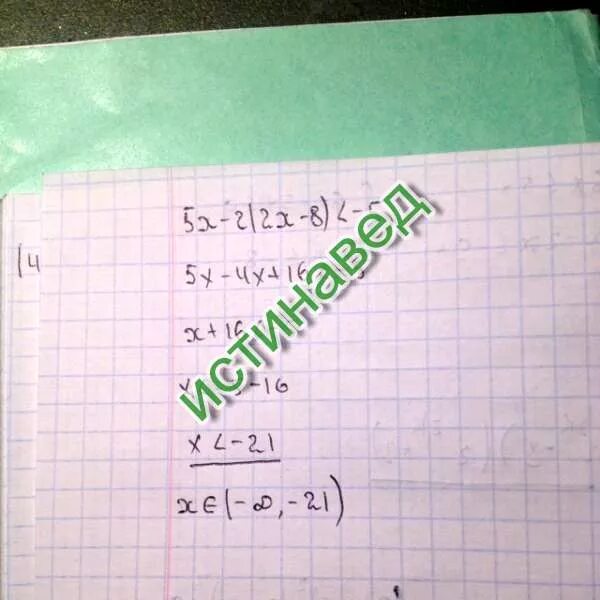 5x-2(2x-8)<-5
(4
5x-4x+16
x+16
-16
x<-21
x∈(-∞,-21)
истинавед